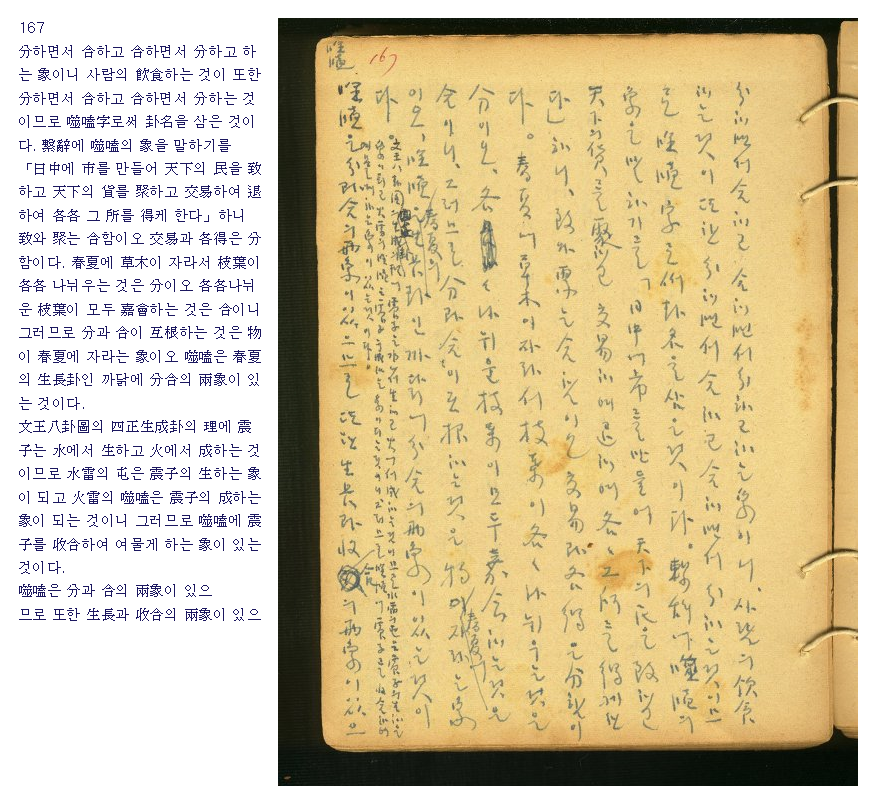 167
分하면서 合하고 合하면서 分하고 하
는 象이니 사람의 飮食하는 것이 또한
分하면서 合하고 合하면서 分하는 것
이므로 噬嗑字로써 卦名을 삼은 것이
다. 繫辭에 噬嗑의 象을 말하기를
「日中에 市를 만들어 天下의 民을 致
하고 天下의 貨를 聚하고 交易하여 退
하여 各各 그 所를 得케 한다」하니
致와 聚는 合함이오 交易과 各得은 分
함이다. 春夏에 草木이 자라서 枝葉이
各各 나뉘우는 것은 分이오 各各나뉘
운 枝葉이 모두 嘉會하는 것은 合이니
그러므로 分과 合이 互根하는 것은 物
이 春夏에 자라는 象이오 噬嗑은 春夏
의 生長卦인 까닭에 分合의 兩象이 있
는 것이다.
文王八卦圖의 四正生成卦의 理에 震
子는 水에서 生하고 火에서 成하는 것
이므로 水雷의 屯은 震子의 生하는 象
이 되고 火雷의 噬嗑은 震子의 成하는
象이 되는 것이니 그러므로 噬嗑에 震
子를 收合하여 여물게 하는 象이 있는
것이다.
噬嗑은 分과 合의 兩象이 있으
므로 또한 生長과 收合의 兩象이 있으
噬嗑
167
分하면서 合하고 合하면서 分하고 하는 象이니 사람의 飮食
하는 것이 또한 分하면서 合하고 合하면서 分하는 것이므
로 噬嗑字로써 卦名을 삼은 것이다。繫辭下 噬嗑의
象을 말하기를「日中에 市를 만들어 天下의 民을 致하고
天下의 貨를 聚하고 交易하여 退하여 各々 그 所를 得케 한
다」하니 致와 聚는 合함이오 交易과 各得은 分함이
다。春夏에 草木이 자라서 枝葉이 各々 나뉘우는 것은
分이오 各々 나뉘운 枝葉이 모두 嘉會하는 것은
合이니 그러므로 分과 合이 互根하는 것은 物이 春夏에 자라는 象
이오 噬嗑은 春夏의 生長卦인 까닭에 分合의 兩象이 있는 것이
다
噬嗑은 分과 合의 兩象이 있으므로 또한 生長과 收合의 兩象이 있으